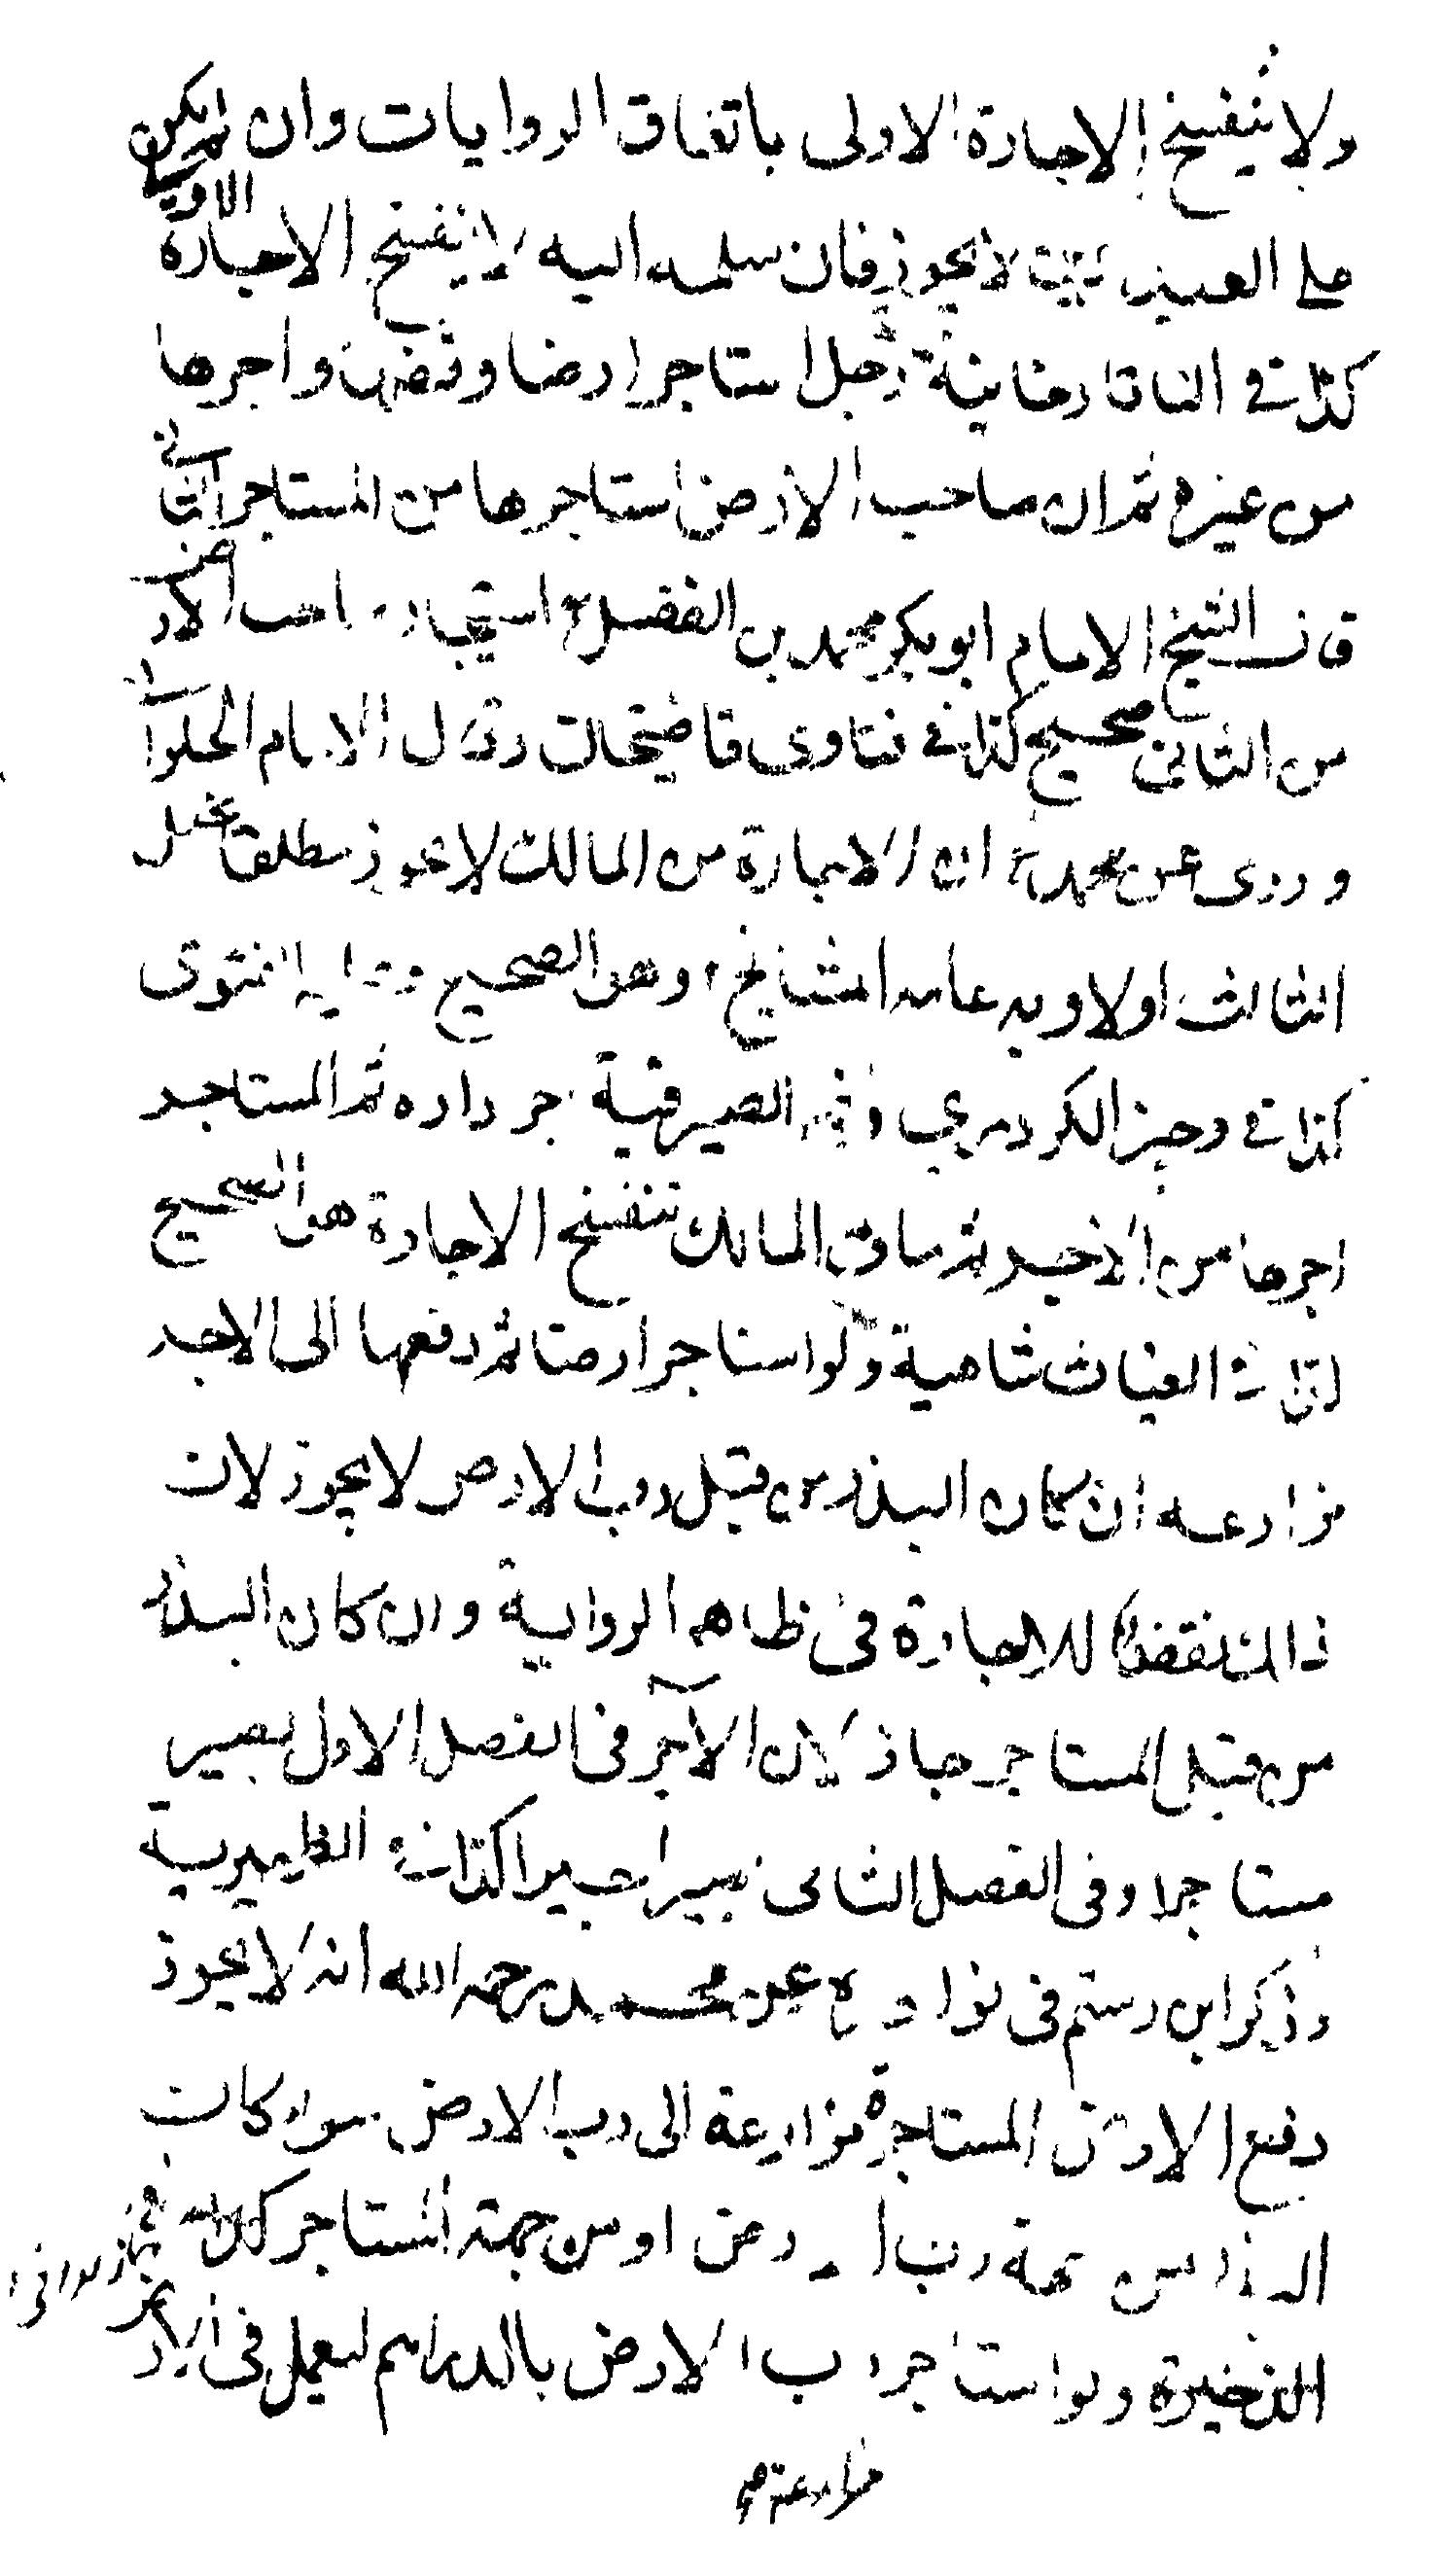 ولا ينفسخ الاجارة الاولى باتفاق الروايات وان لم يكن
على العبد بينة لا يجوز فان سلمه اليه لا ينفسخ الاجارة الاولى
كذا في التاتارخانية رجل استاجر ارضا وقبضها واجرها
من غيره ثم ان صاحب الارض استاجرها من المستاجر الثاني
قال الشيخ الامام ابو بكر محمد بن الفضل استيجار صاحب الارض
من الثاني صحيح كذا في فتاوى قاضيخان وقال الامام الحلواني
وروى عن محمد ان الاجارة من المالك لا يجوز مطلقا تخلل
الثالث اولا وبه عامة المشايخ وهو الصحيح وعليه الفتوى
كذا في وجيز الكردري وفي الصيرفية اجر داره ثم المستاجر
اجرها من الاخير ثم من المالك تنفسخ الاجارة هو الصحيح
كذا في الغياثية شاهية ولو استاجر ارضا ثم دفعها الى الاجر
مزارعه ان كان البذر من قبل رب الارض لا يجوز لان
في المتنقضا للاجارة في ظاهر الرواية وان كان البذر
من قبل المستاجر جاز لان الآجر في الفصل الاول يصير
مستاجرا وفي الفصل الثاني يصير اجيرا كذا في الظهيرية
وذكر ابن رستم في نوادره عن محمد رحمه الله انه لا يجوز
دفع الارض المستاجرة مزارعة الى رب الارض سواء كانت
البذر من جهة رب الارض او من جهة المستاجر كذا في
الذخيرة ولو استاجر رب الارض بالدراهم ليعمل في الارض
مزارعة